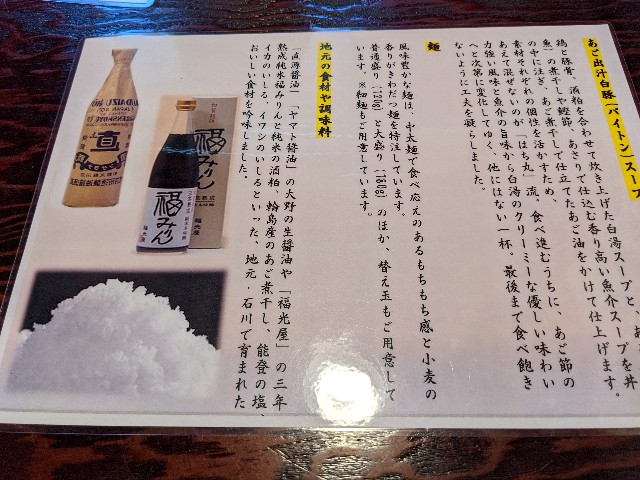 あご出汁白豚(パイトン)スープ
鶏と豚骨、酒粕を合わせて炊き上げた白湯スープと、
魚」の煮干しや鰹節、あさりで仕込む香り高い魚介スープを丼
の中に注ぎ、あご煮干しで仕立てたあご油をかけて仕上げます。
素材それぞれの個性を活かすため、
あえて混ぜないのが「はち丸」流。食べ進むうちに、あご節の
力強い風味と魚介の旨味から白湯のクリーミーな優しい味わい
へと次第に変化してゆく、他にはない一杯。最後まで食べ飽き
ないように工夫を凝らしました。
麺
風味豊かな麺は、中太麺で食べ応えのあるもちもち感と小麦の
香りがきわだつ麺を特注しています。
普通盛り(120g)と大盛り(160g)のほか、替え玉もご用意して
います。※細麺もご用意しています。
地元の食材や調味料
「直源醤油」「ヤマト醤油」の大野の生醤油や「福光屋」の三年
熟成純米福みりんと純米の酒粕、輪島産のあご煮干し、能登の塩、
イカのいしる、イワシのいしるといった、地元・石川で育まれた
おいしい食材を吟味しました。
福みりん
福みりん
福光屋
直